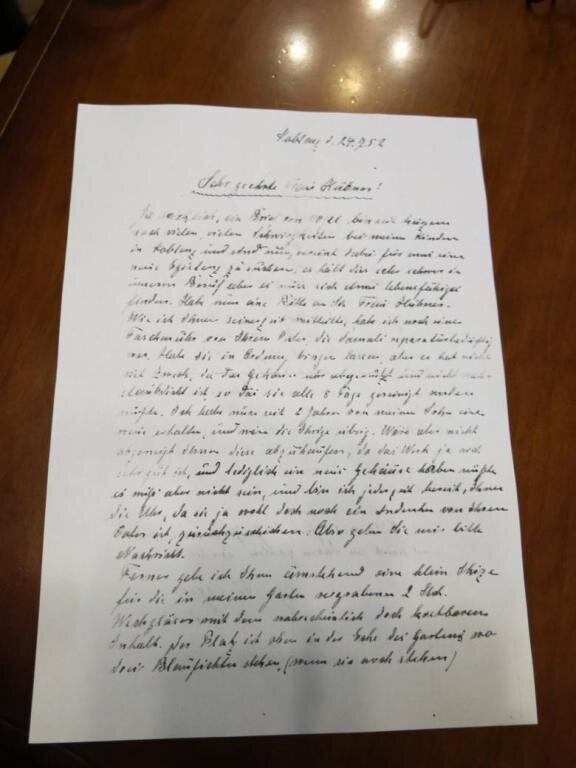 d. 24.7.52
Sehr geehrte Frau Hübner!
ein Brief von bin seit
nach vielen, vielen Schwierigkeiten bei meinen Kindern
in und sind nun, vereint dabei für uns eine
neue Existenz zu suchen, es hält dies sehr schwer in
unserem Beruf aber es muss sich etwas lebensfähiges
finden. Habe nun eine Bitte an Sie Frau Hübner.
Wie ich Ihnen seinerzeit mitteilte, habe ich noch eine
Taschenuhr von Ihrem Vater, die damals reparaturbedürftig
war. Habe sie in Ordnung bringen lassen, aber es hat nicht
viel Zweck, da das Gehäuse abgenützt und nicht mehr
staubdicht ist, so das sie alle 8 Tage gereinigt werden
müßte. Ich habe nun seit 2 Jahren von meinem Sohn eine
neue erhalten, und wäre die Ihrige übrig. Wäre aber nicht
abgeneigt Ihnen diese abzukaufen, da das Werk ja noch
sehr gut ist, und lediglich ein neues Gehäuse haben müßte
es muß aber nicht sein, und bin ich jederzeit bereit, Ihnen
die Uhr, da sie ja wohl doch noch ein Andenken von Ihrem
Vater ist, zurückzuschicken. Also geben Sie mir bitte
Nachricht.
Ferner gebe ich Ihnen umstehend eine klein Skize
für die in meinem Garten vergrabenen 2 Stck.
Weckgläser mit dem wahrscheinlich doch kostbaren
Inhalt. Der Platz ist oben in der Ecke des Gartens wo
drei Blaufichten stehen, (wenn sie noch stehen)